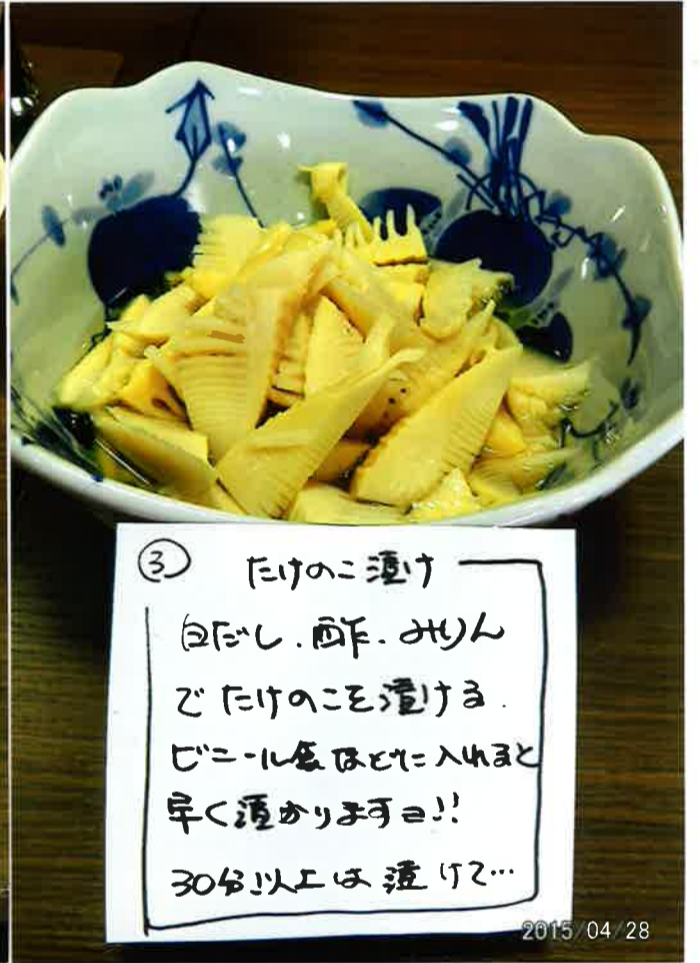 ③ たけのこ漬け
白だし、酢、みりん
でたけのこを漬ける。
ビニール袋などに入れると
早く漬かりますヨ!!
30分以上は漬けて…
2015/04/28